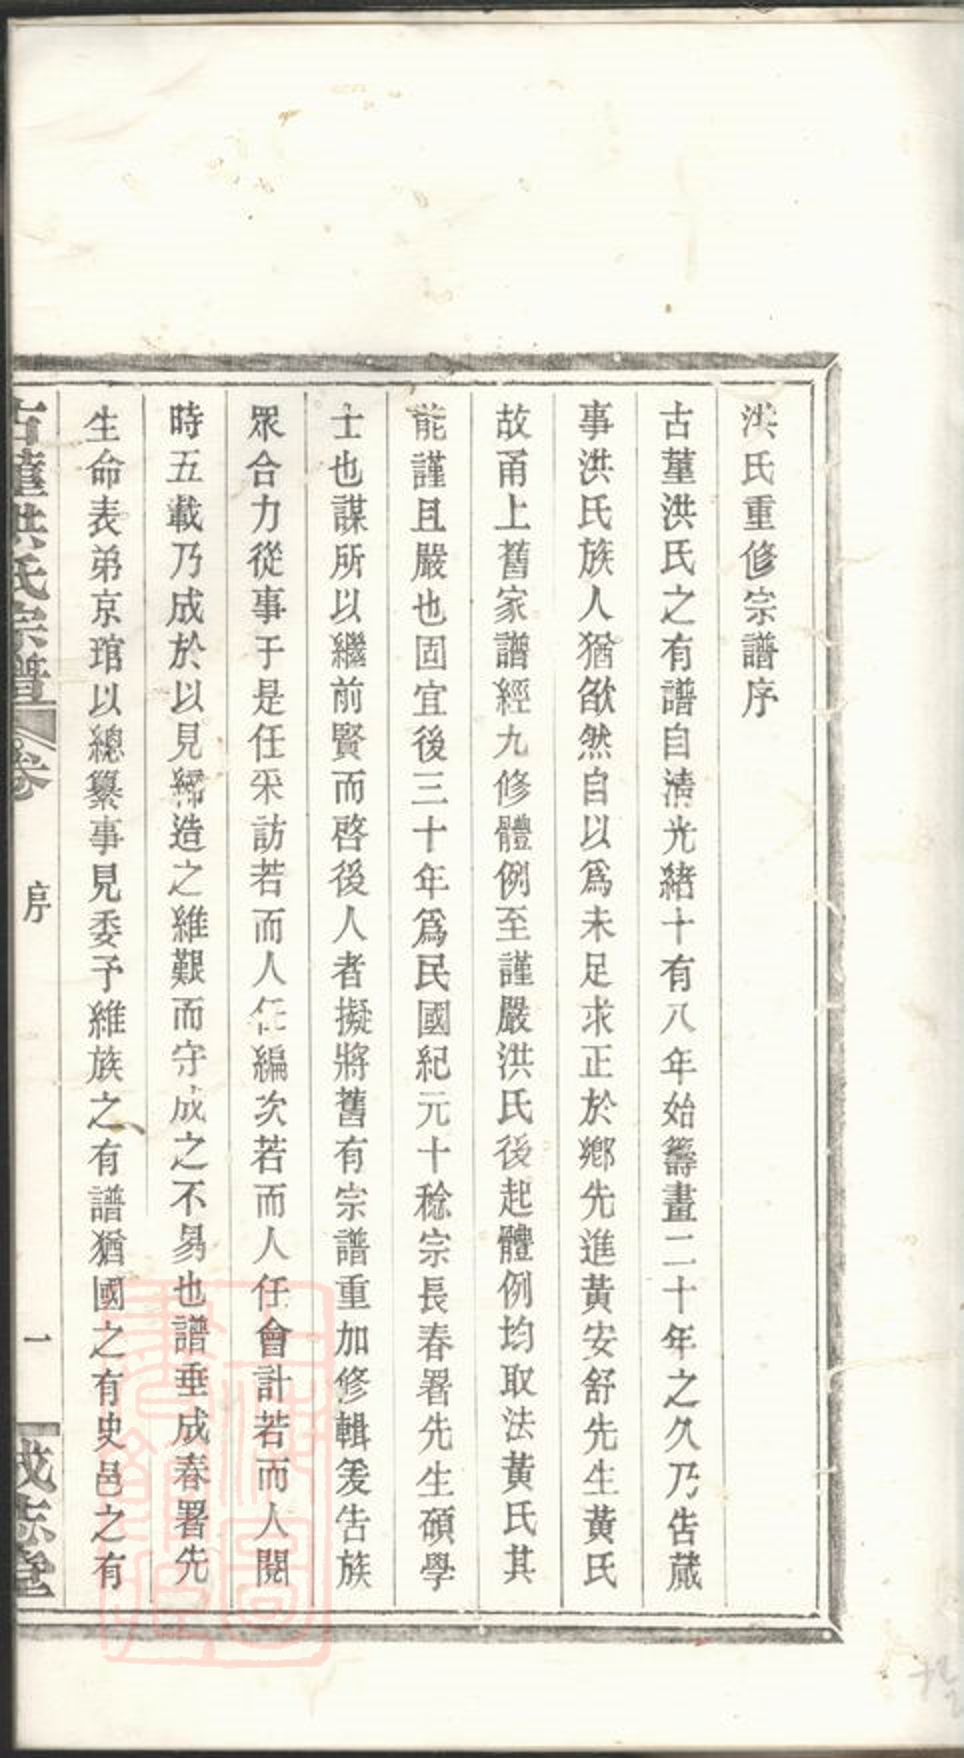 洪氏重修宗譜序
古菫洪氏之有譜自清光緒十有八年始籌畫二十年之久乃告蕆
事洪氏族人猶欿然自以爲未足求正於鄉先進黃安舒先生黃氏
故甬上舊家譜經九修體例至謹嚴洪氏後起體例均取法黃氏其
能謹且嚴也固宜後三十年爲民國紀元十稔宗長春署先生碩學
士也謀所以繼前賢而啓後人者擬將舊有宗譜重加修輯爰告族
眾合力從事于是任采訪若而人任編次若而人任會計若而人閱
時五載乃成於以見締造之維艱而守成之不易也譜垂成春署先
生命表弟京琯以總纂事見委予維族之有譜猶國之有史邑之有
古菫洪氏宗譜 卷 序 一 成志堂
上海圖書館藏